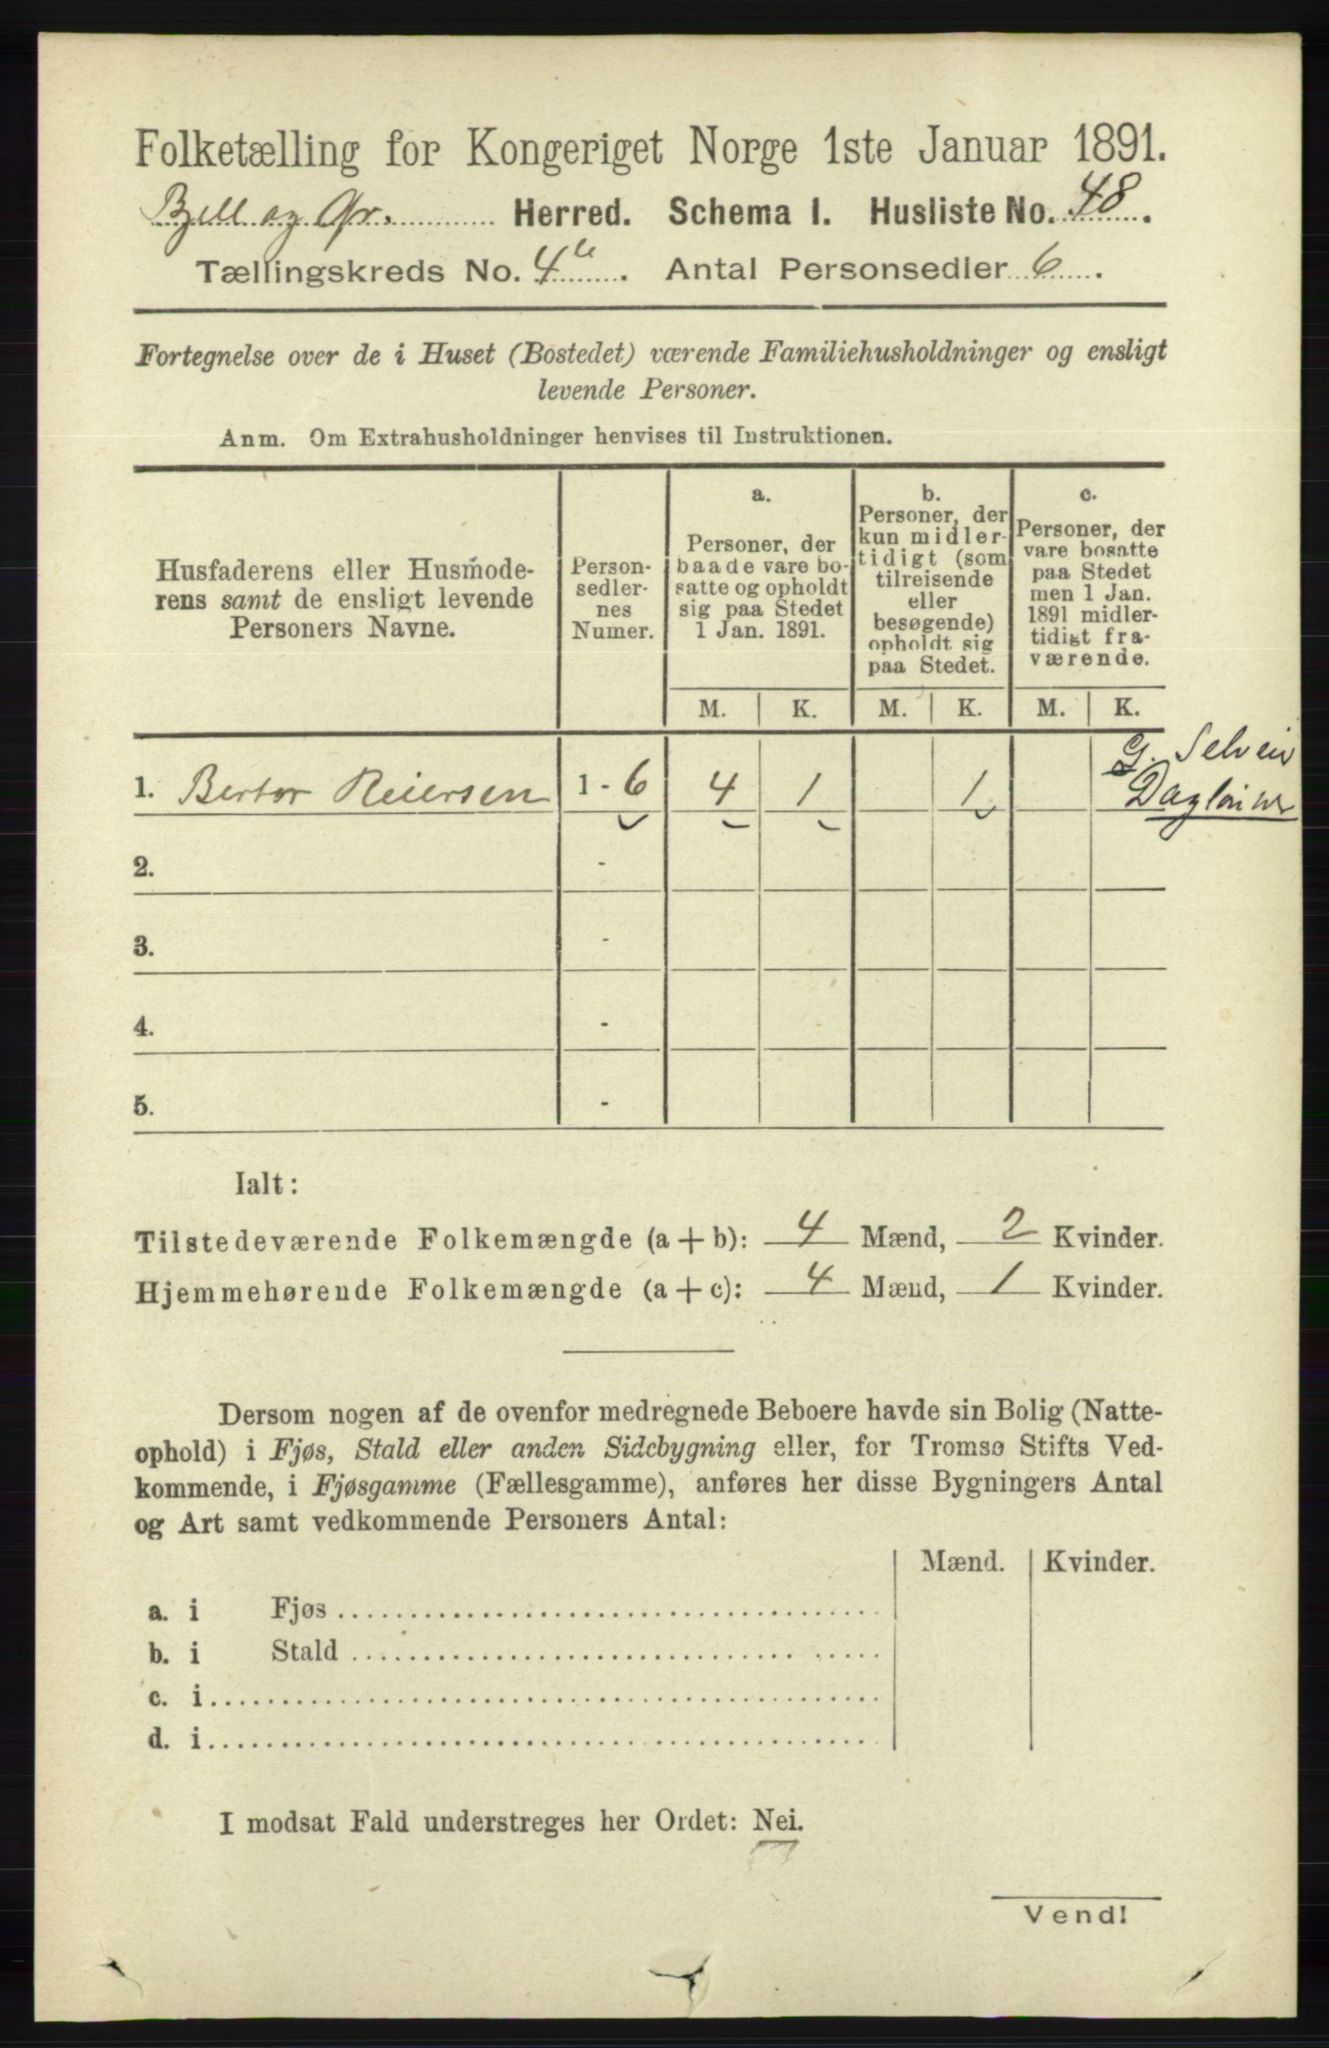 Folketælling for Kongeriget Norge 1ste Januar 1891.
Bjell og Gr. Herred. Schema I. Husliste No. 48.
Tællingskreds No. 4 b. Antal Personsedler 6.
Fortegnelse over de i Huset (Bostedet) værende Familiehusholdninger og ensligt
levende Personer.
Anm. Om Extrahusholdninger henvises til Instruktionen.
Husfaderens eller Husmode-
rens samt de ensligt levende
Personers Navne.
Person-
sedler-
nes
Numer.
a.
Personer, der
baade vare bo-
satte og opholdt
sig paa Stedet
1 Jan. 1891.
b.
Personer, der
kun midler-
tidigt (som
tilreisende
eller
besøgende)
opholdt sig
paa Stedet.
c.
Personer, der
vare bosatte
paa Stedet
men 1 Jan.
1891 midler-
tidigt fra-
værende.
M. K. M. K. M. K.
G. Selveier
1. Bertor Reiersen 1 - 6 4 1 1 Dagleier
2. -
3. -
4. -
5. -
Ialt:
Tilstedeværende Folkemængde (a + b): 4 Mænd, 2 Kvinder.
Hjemmehørende Folkemængde (a + c): 4 Mænd, 1 Kvinder.
Dersom nogen af de ovenfor medregnede Beboere havde sin Bolig (Natte-
ophold) i Fjøs, Stald eller anden Sidebygning eller, for Tromsø Stifts Ved-
kommende, i Fjøsgamme (Fællesgamme), anføres her disse Bygningers Antal
og Art samt vedkommende Personers Antal:
Mænd. Kvinder.
a. i Fjøs
b. i Stald
c. i
d. i
I modsat Fald understreges her Ordet: Nei.
Vend!